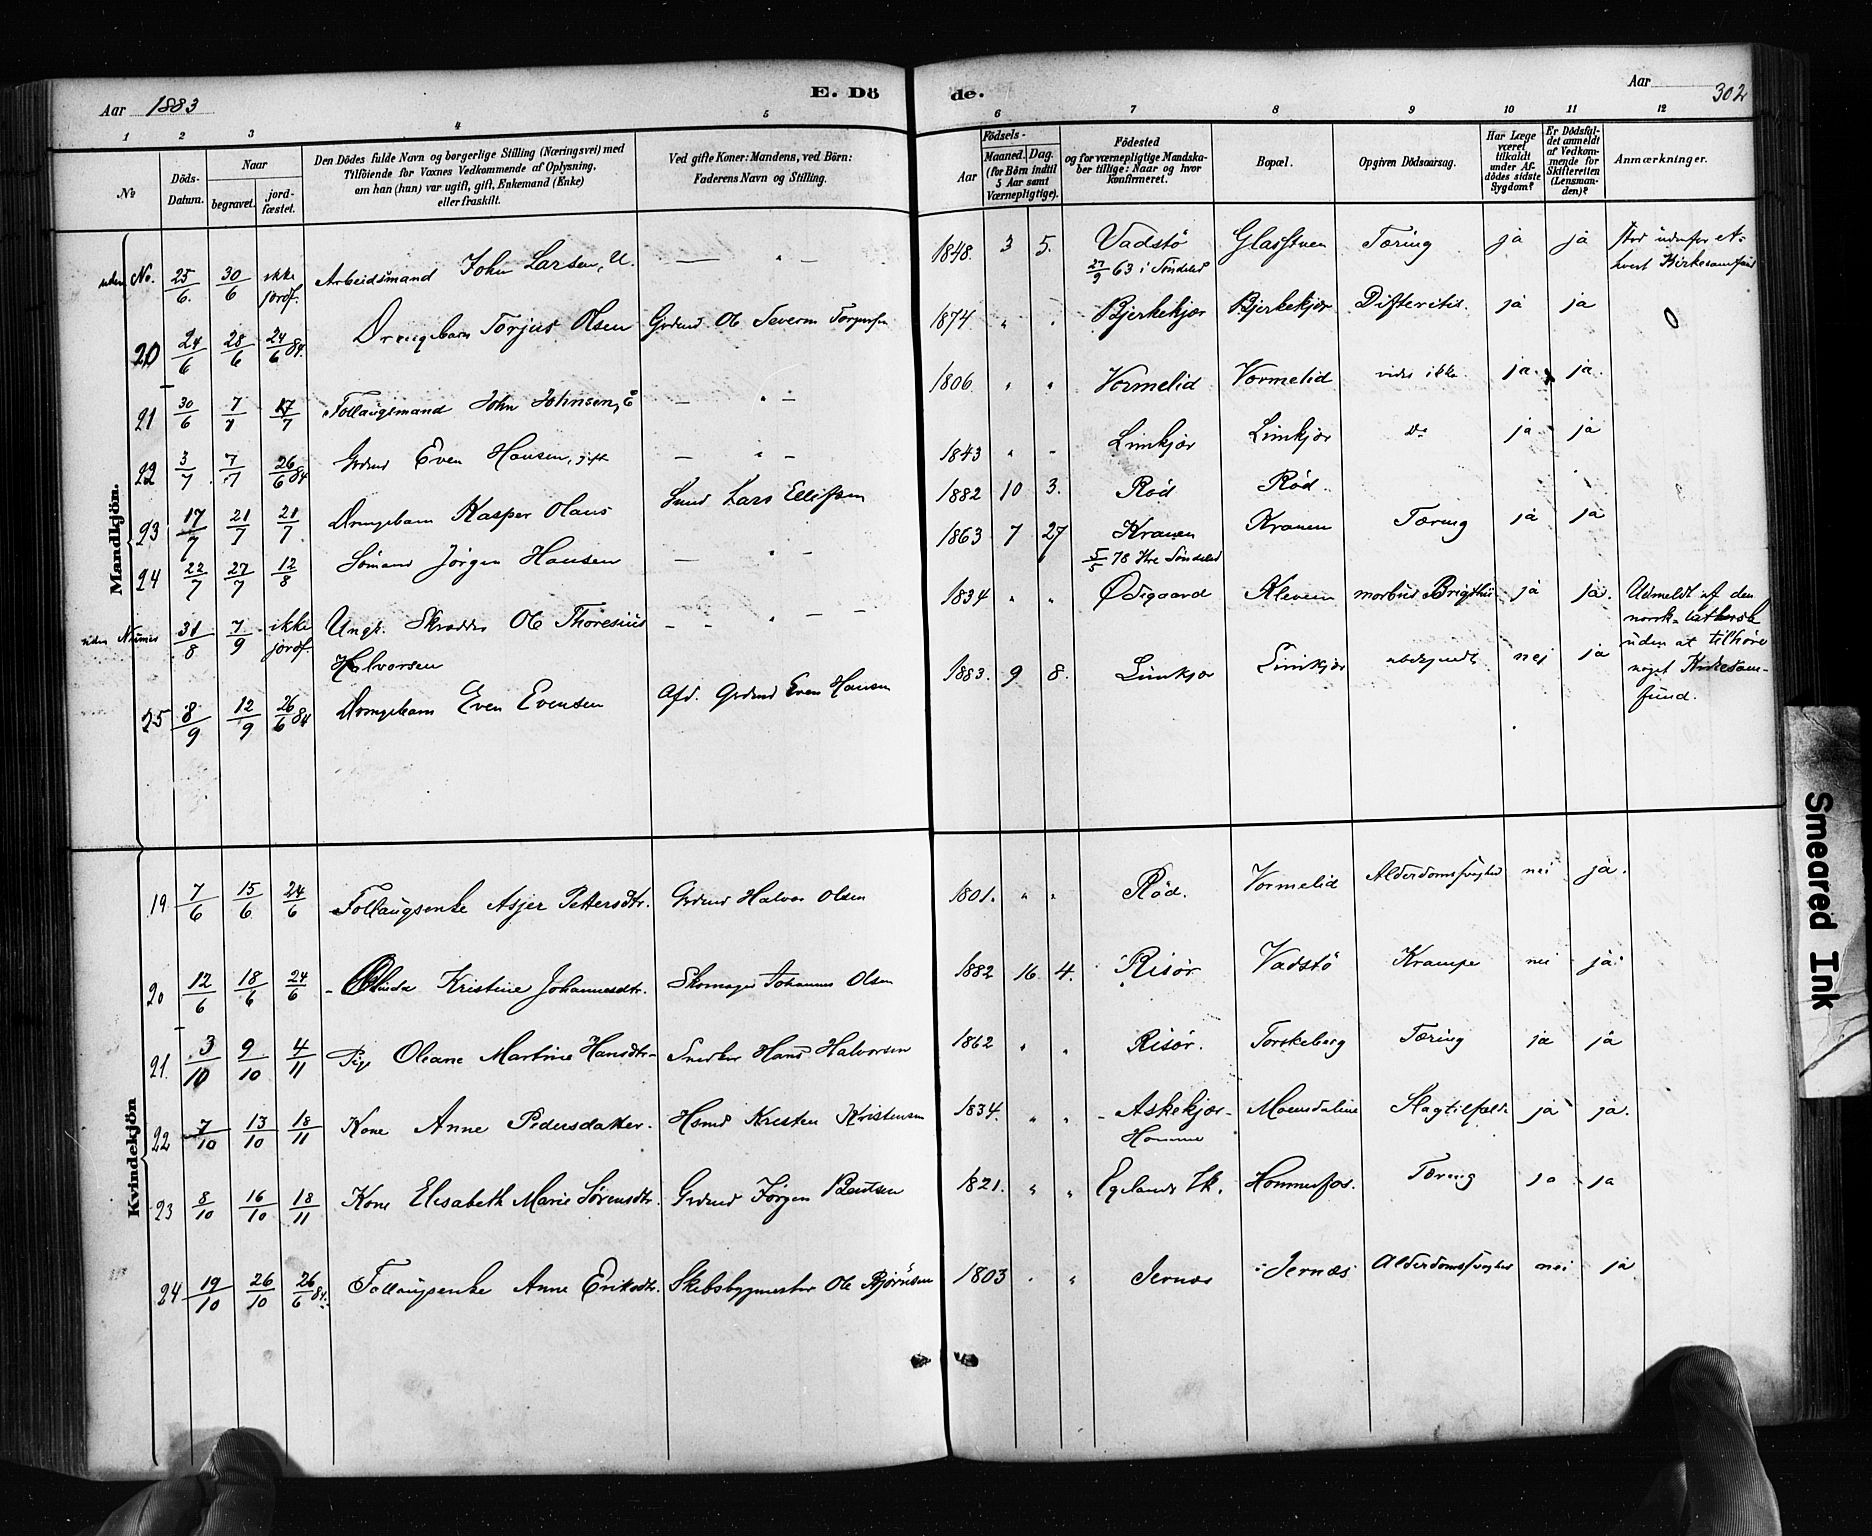 Aar 1883
E. Dö
de.
Aar 302
1 2 3 4 5 6 7 8 9 10 11 12
No
Döds-Datum.
Naar
begravet.
jord-fæstet.
Den Dödes fulde Navn og borgerlige Stilling (Næringsvei) med
Tilföiende for Voxnes Vedkommende af Oplysning,
om han (hun) var ugift, gift, Enkemand (Enke)
eller fraskilt.
Ved gifte Koner: Mandens, ved Börn:
Faderens Navn og Stilling.
Födsels-
Aar
Maaned. Dag.
(for Börn indtil
5 Aar samt
Værnepligtige).
Födested
og for værnepligtige Mandska-
ber tillige: Naar og hvor
konfirmeret.
Bopæl.
Opgiven Dödsaarsag.
Har Læge
været
tilkaldt
under Af-
dödes sidste
Sygdom?
Er Dödsfal-
det anmeldt
af Vedkom-
mende for
Skifteretten
(Lensman-
den)?
Anmærkninger.
Mandkjön.
uden No. 25/6. 30/6 ikke jordf. Arbeidsmand John Larsen, U. — " — 1848. 3 5. Vadstö Glasstuen Tæring ja ja
27/9 63 i Söndeled
20 24/6 28/6 24/6 84. Drengebarn Torjus Olsen Grdmd Ole Severin 1874 " " Bjerkekjær Bjerkekjær Difteritis. ja ja 0
21 30/6 7/7 17/7 Follaugsmand John Johnsen, E — " — 1806 " " Vormelid Vormelid vides ikke ja ja.
22 3/7 7/7 26/6 84 Grdmd Even Hansen, gift — " — 1843 " " Limkjær Limkjær do ja ja
23 17/7 21/7 21/7 Drengebarn Kasper Olaus Lars Ellefsen 1882 10 3. Röd Röd
24 22/7 27/7 12/8 Sömand Jörgen Hansen — " — 1863 7 27 Kranen Kranen Tæring ja ja
5/5 78 Söndeled
uden Numer 31/8 7/9 ikke jordf. Ungk. Skrædder Ole Thoresius - - " — — 1834 " " Ödegaard Kleven morbus Brigthii ja ja. Udmeldt af den
Halvorsen
norsk-luthersk
uden at tilhöre
noget Kirkesam-
fund.
25 8/9 12/9 26/6 84 Drengebarn Even Evensen Afd. Grdmd Even Hansen 1883. 9 8. Limkjær Limkjær ubekjendt nei ja
Kvindekjön
19 7/6 15/6 24/6 Follaugsenke Asjer Pettersdtr. Grdmd Halvor Olsen 1801. " " Röd. Vormelid Alderdomssvaghed nei ja.
20 12/6 18/6 24/6 Kristine Johannesdtr. Skomager Johannes Olsen 1882 16 4. Risör Vadstö Krampe nei ja.
21. 3/10 9/10 4/11 Pige Oleane Martine Hansdtr. Snedker Hans Halvorsen 1862 " " Risör. Torskeberg Tæring ja ja
22 7/10 13/10 18/11 Kone Anne Pedersdatter. Hsmd Kristen Kristensen 1834. " " Askekjær- Moensdaline Slagtilfælde ja ja.
Homme
23 8/10 16/10 18/11 Kone Elisabeth Marie Sörensdtr. Grdmd Jörgen Bentsen 1821. " " Egelands Vk. Hommefos. Tæring ja ja
24 19/10 26/10 26/6 84. Follaugsenke Anne Eriksdtr. Skibsbygmester Ole Björnsen 1803 " " Jernæs Jernæs Alderdomssvaghed nei ja
Smeared Ink